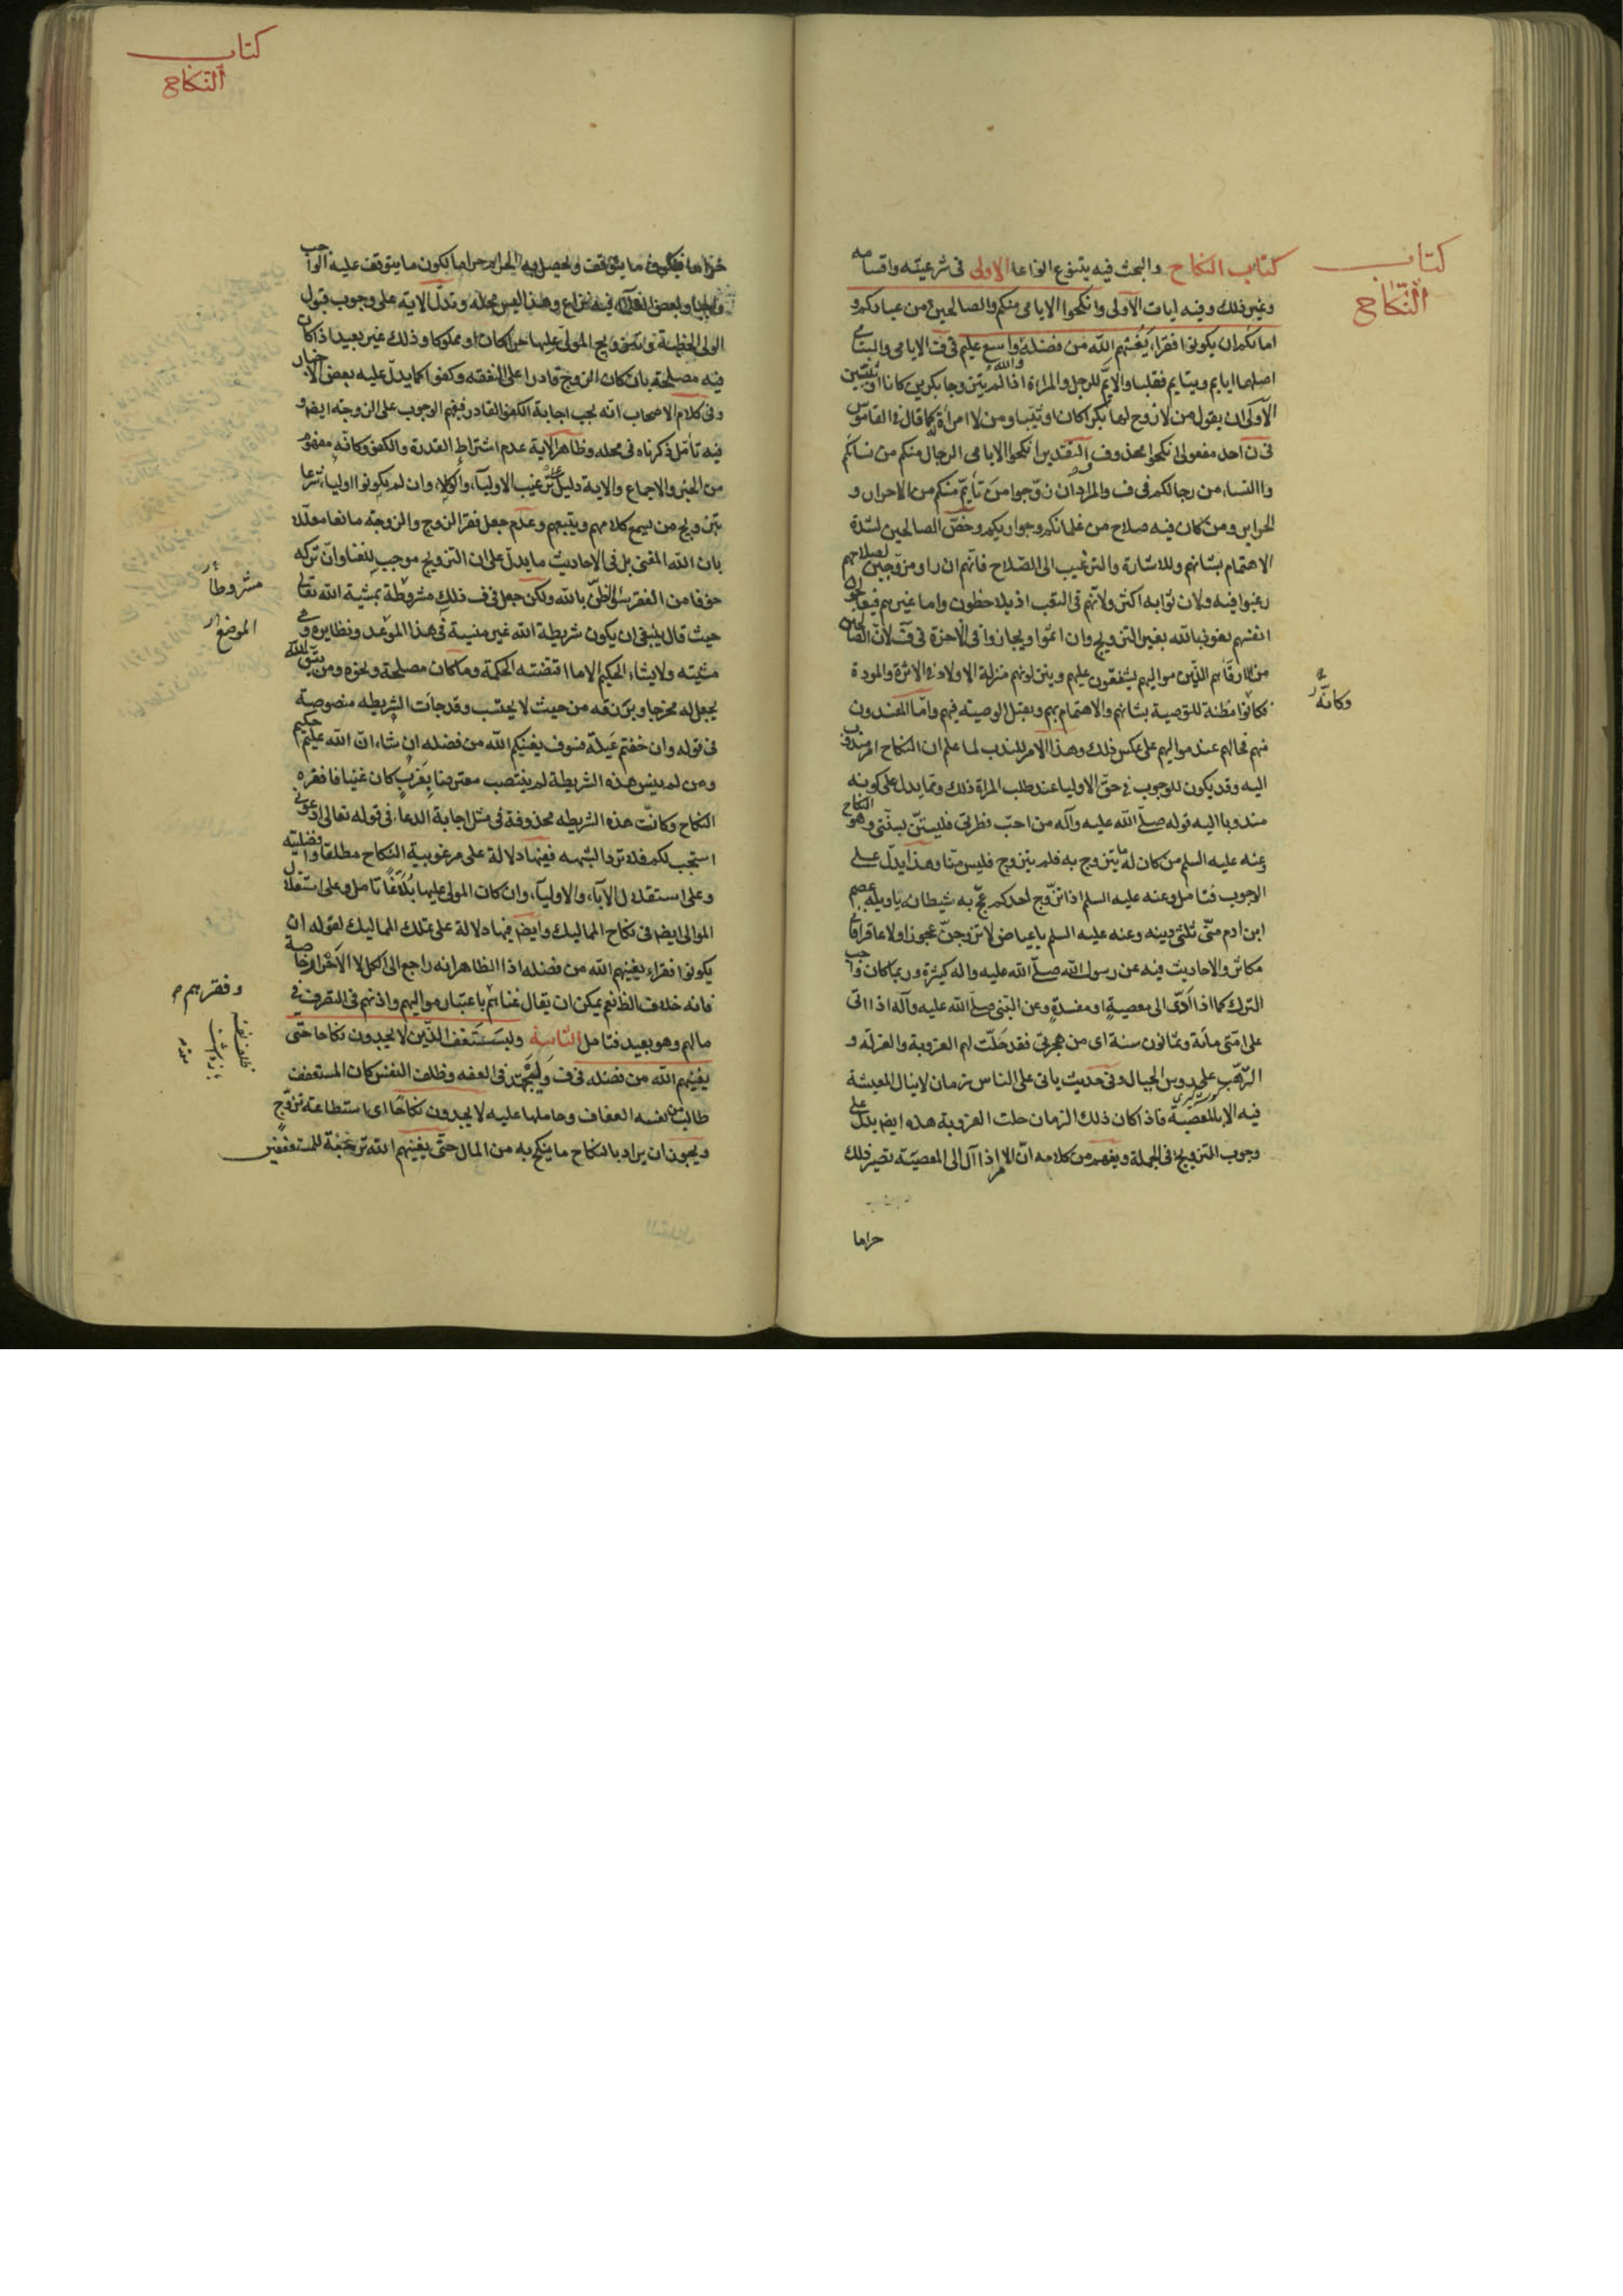 كتاب
النّكاح
كتاب النكاح والبحث فيه يتنوع انواعا الاولى في شرعيته واقسامه
وغير ذلك وفيه ايات الاولى وانكحوا الايامى منكم والصالحين من عبادكم و
امائكم ان يكونوا فقراء يغنهم الله من فضله والله واسع عليم في ف الايامى واليتامى
اصلهما ايايم ويتايم فقلبا والايّم للرجل والمراة اذا لم يتزوجا بكرين كانا او ثيّبين
الاولى ان يقول من لا زوج لها بكرا كان او ثيبا ومن لا امرأة له كما قال في القاموس
في ن احد مفعولى انكحوا محذوف التقدير انكحوا الايامى الرجال منكم من نسائكم
والنساء من رجالكم في ف والمراد ان زوّجوا من تأيّم منكم من الاحرار و
الحراير ومن كان فيه صلاح من غلمانكم وجواريكم وخصّ الصالحين لشدة
الاهتمام بشانهم وللاشارة والترغيب الى الصّلاح فانّهم ان راو مزوّجين لصلاحهم
رغبوا فيه ولان ثوابه اكثر ولانّهم في التعب اذ يلاحظون واما غيرهم فيعالجون
انفسهم نعوذ بالله بغير التزويج وان اثموا ويجازوا في الاخرة في ف لانّ الصالحين
من ارقّائهم الذين مواليهم يشفقون عليهم وينزلونهم منزلة الاولاد في الاثرة والمودة
فكانوا مظنة للتوصية بشانهم والاهتمام بهم وتقبل الوصية فيهم وامّا المفسدون
منهم فحالهم عند مواليهم على عكس ذلك وهذا الامر للندب لما علم ان النكاح امر مندوب
اليه وقد يكون للوجوب في حقّ الاوليا عند طلب المراة ذلك وممّا يدل على كونه
مندوبا اليه قوله صلّى الله عليه وآله من احبّ فطرتي فليستنّ بسنّتي وهو النكاح
وعنه عليه السلم من كان له ما يتزوج به فلم يتزوج فليس منّا وهذا يدلّ على
الوجوب فتامل وعنه عليه السلم اذا تزوّج احدكم عجّ به شيطانه ياويله عصم
ابن ادم منّى ثلثى دينه وعنه عليه السلم يا عياض لا تزوجنّ عجوزا ولا عاقرا فانّى
مكاثر والاحاديث فيه عن رسول الله صلّى الله عليه واله كثيرة وربما كان واجب
الترك كما اذا ادّى الى معصية او مفسدة وعن النبي صلى الله عليه وآله اذا اتى
على امّتى مائة وثمانون سنة اى من هجرتى فقد حلّت لهم العزوبة والعزلة و
الترّهب على رؤس الجبال وفى حديث ياتى على الناس زمان لا ينال المعيشة
فيه الا بالمعصية فاذا كان ذلك الزمان حلت العزوبة هذه ايضا يدل على
وجوب التزويج في الجملة ويفهم من كلامه انّ الامر اذا آل الى المعصيّة تصير ذلك
حراما
وكانّه
كتاب
النّكاح
الولى الخطبة وتزويج المولّى عليها حرا كان او مملوكا وذلك غير بعيد اذا كان
فيه مصلحة بان كان الزوج قادرا على النفقه وكفوا كما يدلّ عليه بعض الاخبار
وفى كلام الاصحاب انّه يجب اجابة الكفو القادر فيفهم الوجوب على الزوجة ايضا و
فيه تأمّل ذكرناه في محله وظاهر الاية عدم اشتراط القدرة والكفو وكانّه مفهوم
من الخبر والاجماع والاية دليل على ترغيب الاولياء والوكلاء وان لم يكونوا اولياء شرعا
بتزويج من يسمع كلامهم ويتبعهم وعدم جعل فقر الزوج والزوجة مانعا معلّلا
بان الله المغنى بل في الاحاديث ما يدلّ على ان التزويج موجب للغنا وانّ تركه
خوفا من الفقر سوء الظنّ بالله ولكن جعل في ف ذلك مشروطة بمشية الله تعالى
حيث قال ينبغى ان يكون شريطة الله غير منسية في هذا الموعد ونظايره وهى
مشيته ولا يشاء الحكيم الا ما اقتضته الحكمة وما كان مصلحة ونحوه ومن يتّق الله
يجعل له مخرجا ويرزقه من حيث لا يحتسب وقد جاءت الشريطه منصوصة
في قوله وان خفتم عيلة فسوف يغنيكم الله من فضله ان شاء انّ الله عليم حكيم
ومن لم ينس هذه الشريطة لم ينتصب معترضا بعزب كان غنيا فافقره
النكاح وكانت هذه الشريطه محذوفة في مثل اجابة الدعاء في قوله تعالى ادعونى
استجب لكم فلا ترد الشبهه ففيها دلالة على مرغوبية النكاح مطلقا وافضليته
وعلى استقلال الآباء والاولياء وان كان المولى عليها بُلّغًا تامل وعلى استقلال
الموالى ايضا في نكاح المماليك وايضا فيها دلالة على تملك المماليك لقوله ان
يكونوا فقراء يغنيهم الله من فضله اذ الظاهر انه راجع الى الكل لا الاحرار خاصة
فانه خلاف الظ نعم يمكن ان يقال غناهم باعتبار مواليهم واذنهم في التصرف في
مالهم وهو بعيد فتامل الثانية وليستعفف الذّين لا يجدون نكاحا حتّى
يغنيهم الله من فضله في ف وليجتهد في العفه وظلف النفس كان المستعفف
طالب من نفسه العفاف وحاملها عليه لا يجدون نكاحًا اى استطاعة تزوّج
ويجوز ان يراد بالنكاح ما ينكح به من المال حتّى يغنيهم الله ترجية للمستعففين
مشروطا
الموضع
وفقرهم